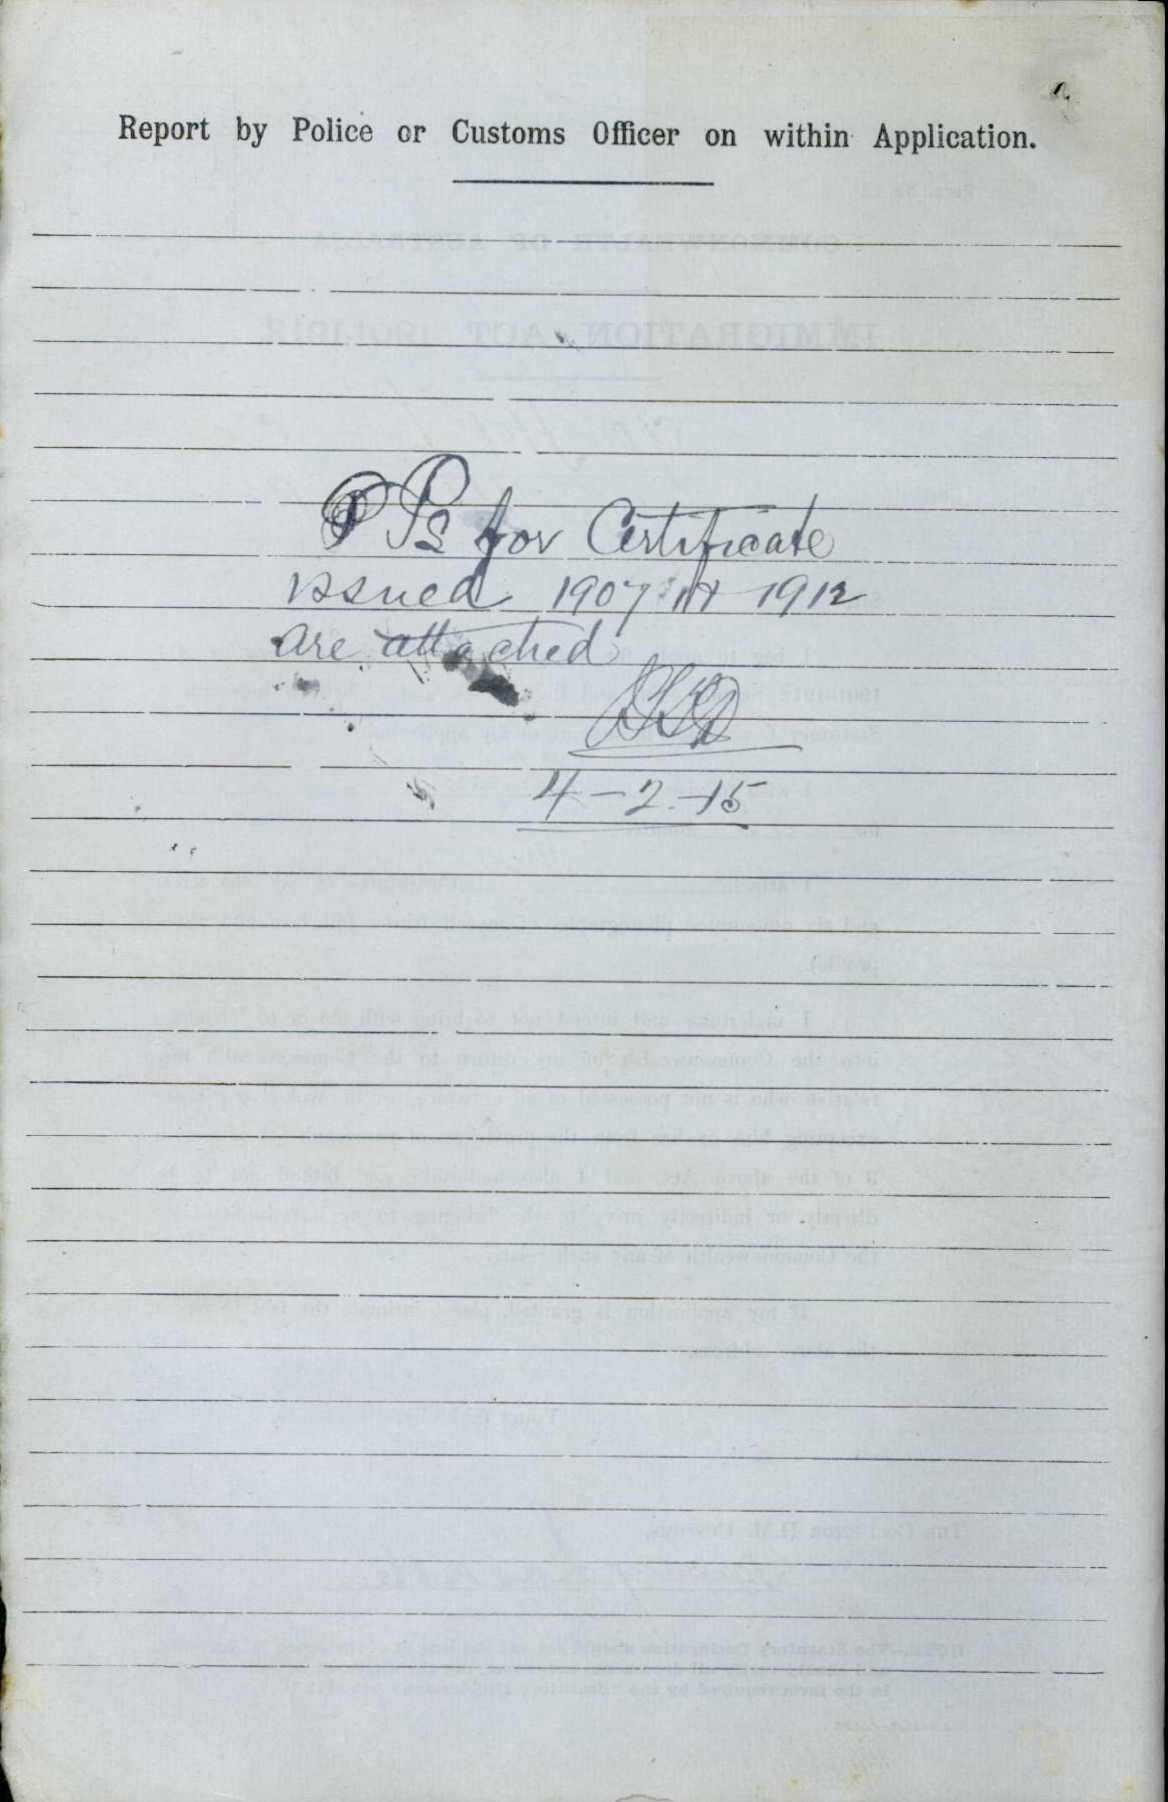 Report by Police or Customs Officer on within Application.
PPs for Certificate
issued 1907 & 1912
are attached
4-2-15